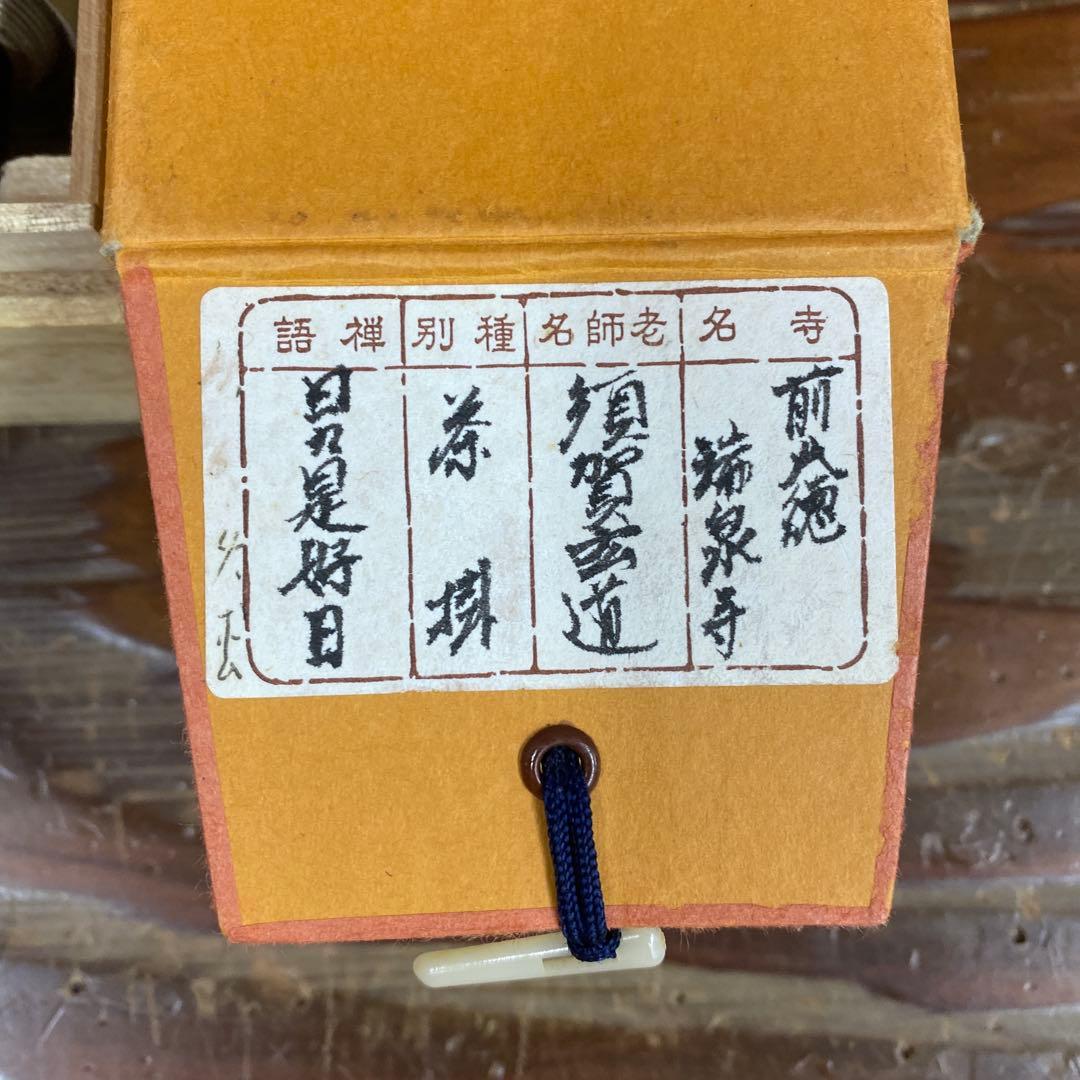 寺名
前大徳
瑞泉寺
老師名
須賀玄道
種別
茶掛
禅語
日々是好日